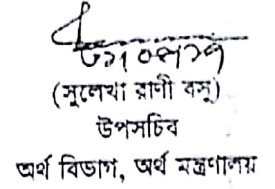 (সুলেখা রাণী বসু)
উপসচিব
অর্থ বিভাগ, অর্থ মন্ত্রণালয়